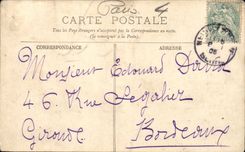 Paris 4
CARTE POSTALE
Tous les Pays Etrangers n'acceptent pas la Correspondance au Recto
(Se renseigner à la Poste)
CORRESPONDANCE
ADRESSE
Monsieur Edouard David
46 Rue Lagalier
Gironde
Bordeaux